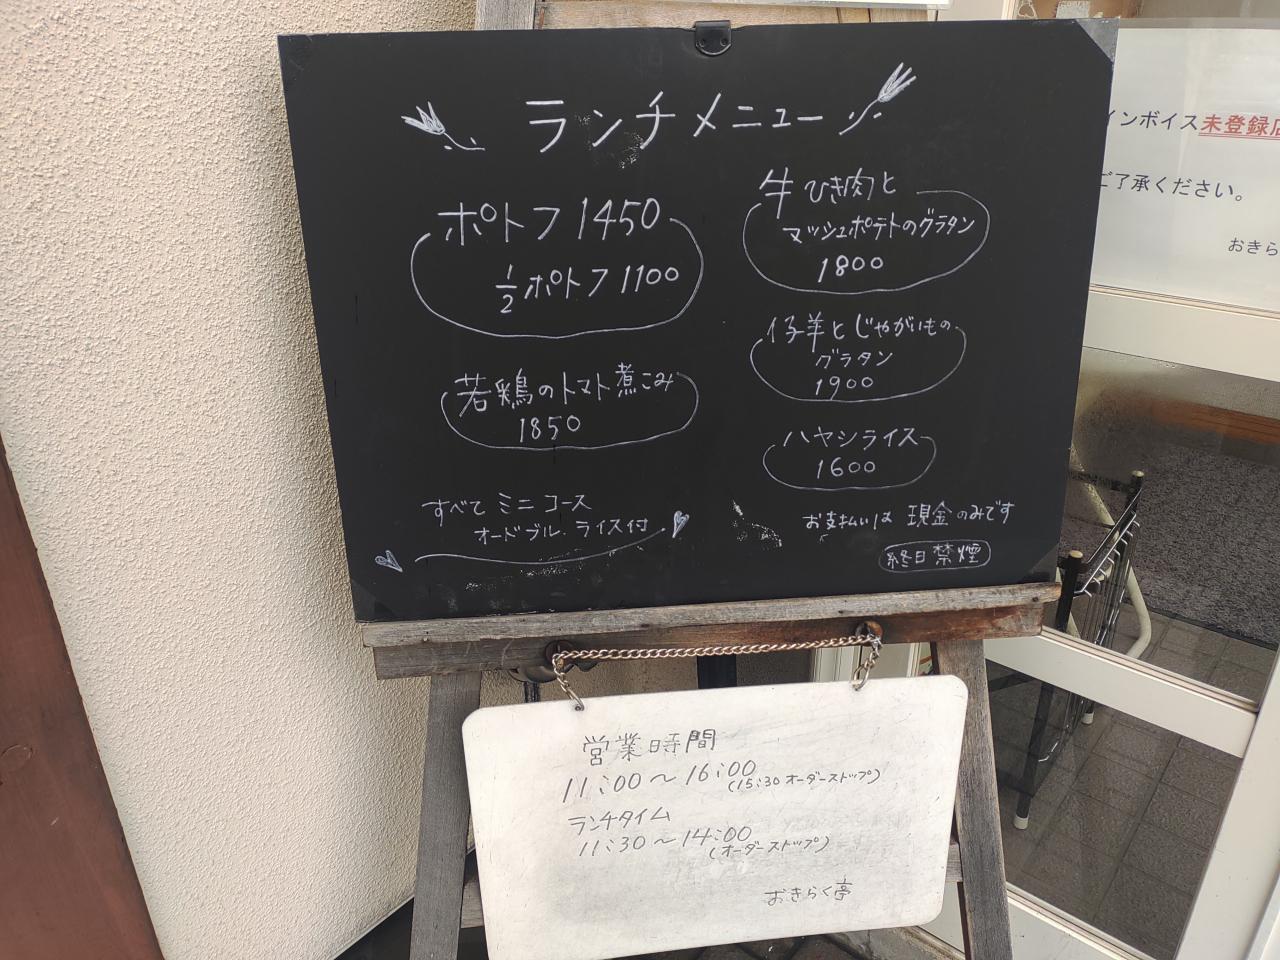 ランチメニュー
ポトフ 1450
1/2 ポトフ 1100
若鶏のトマト煮こみ
1850
すべて ミニコース
オードブル、ライス付
牛ひき肉と
マッシュポテトのグラタン
1800
仔羊とじゃがいもの
グラタン
1900
ハヤシライス
1600
お支払いは 現金のみです
終日禁煙
営業時間
11:00〜16:00
(15:30 オーダーストップ)
ランチタイム
11:30〜14:00
(オーダーストップ)
おきらく亭
インボイス未登録店
ご了承ください。
おきら